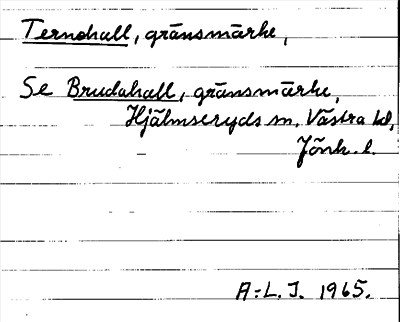 Ternohall, gränsmärke,
Se Brudahall, gränsmärke,
Hjälmseryds sn, Västra hd,
Jönk. l.
A:L. J. 1965.